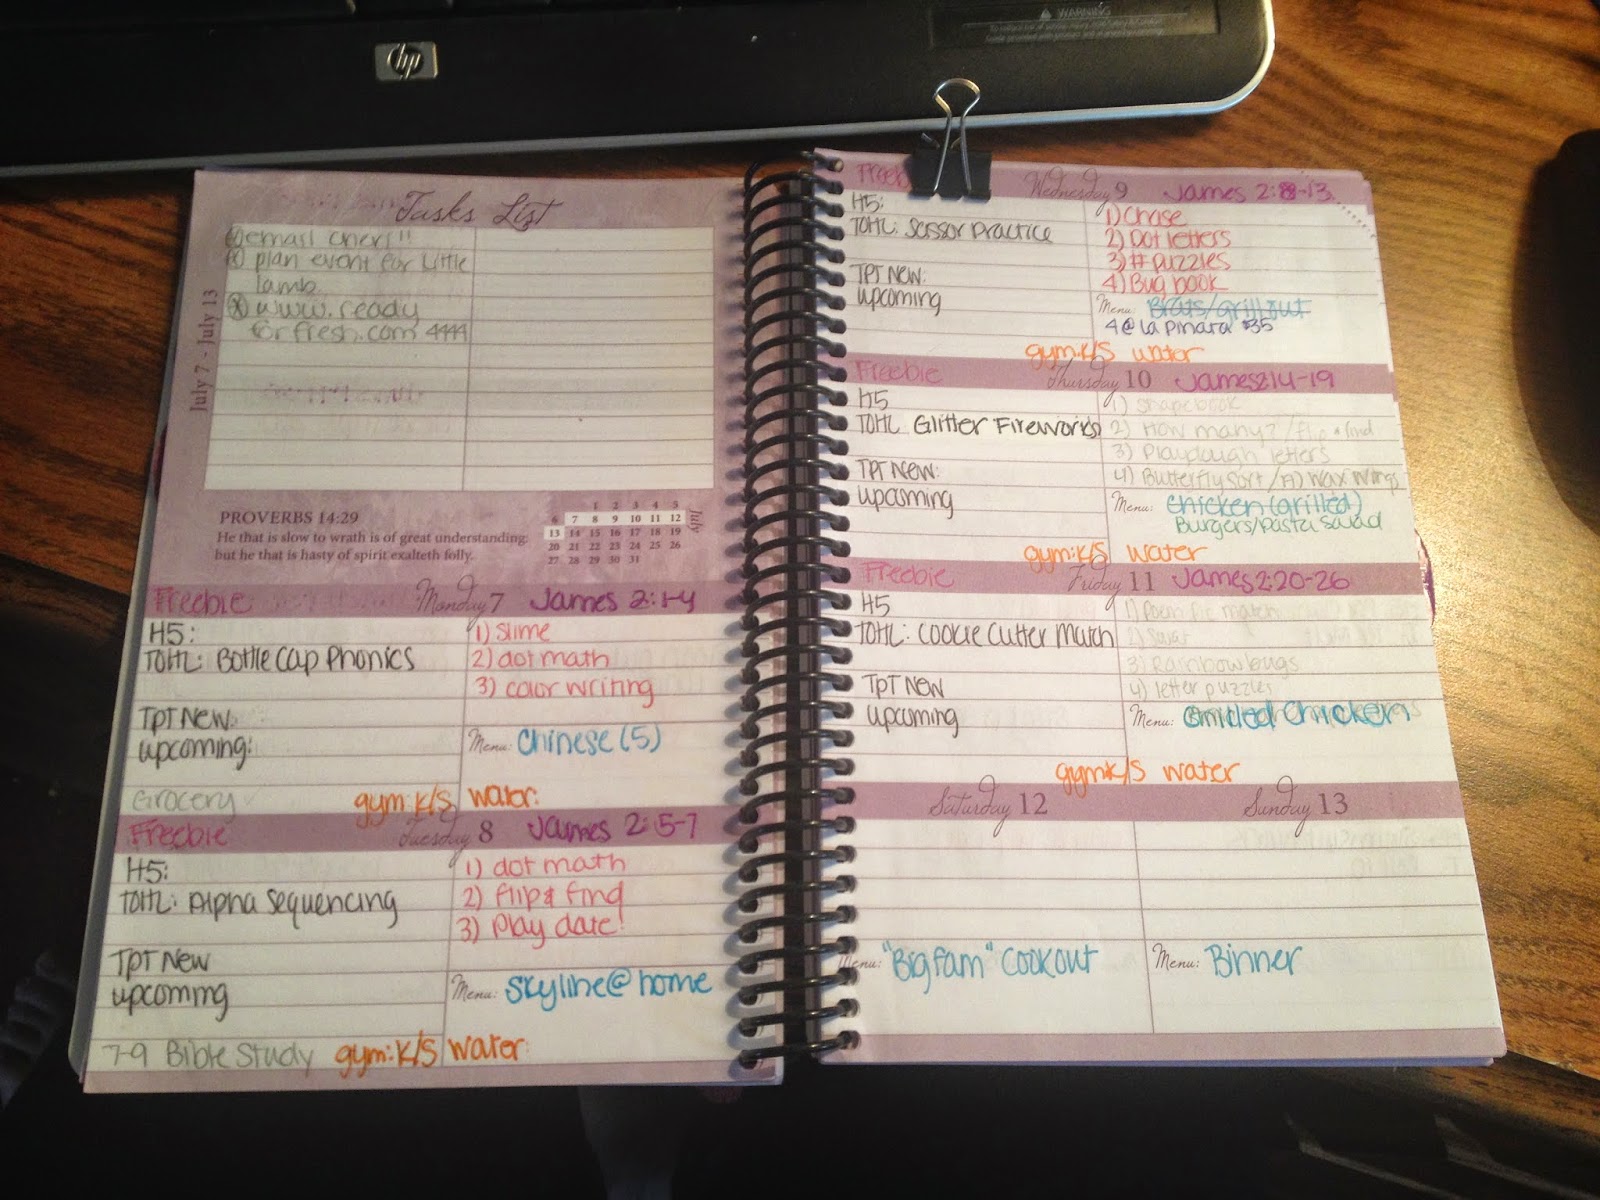 hp
WARNING
Tasks List
email cheri!!
plan event for little
lamb.
www.ready
forfresh.com 4444
July 7 - July 13
PROVERBS 14:29
He that is slow to wrath is of great understanding:
but he that is hasty of spirit exalteth folly.
July
1 2 3 4 5
6 7 8 9 10 11 12
13 14 15 16 17 18 19
20 21 22 23 24 25 26
27 28 29 30 31
Freebie Monday 7 James 2:1-4
H5: 1) slime
TOHL: Bottle Cap Phonics 2) dot math
3) color writing
TPT New:
upcoming: Menu: Chinese (5)
Grocery gym: K/S water:
Freebie Tuesday 8 James 2:5-7
H5: 1) dot math
TOHL: Alpha Sequencing 2) flip & find
3) Play date!
TPT New
upcoming Menu: Skyline @ home
7-9 Bible Study gym: K/S water:
Freeb Wednesday 9 James 2:8-13
H5: 1) Chase
TOHL: Scissor Practice 2) Dot letters
3) # puzzles
TPT New: 4) Bug book
upcoming Menu: Brats/grill out
4 @ la pinara $35
gym: K/S water
Freebie Thursday 10 James 2:14-19
H5 1) Shape book
TOHL Glitter Fireworks 2) How many? / Flip & find
3) Playdough letters
TPT New: 4) Butterfly sort / Wax Wings
upcoming Menu: Chicken (grilled)
Burgers/Pasta Salad
gym: K/S water
Freebie Friday 11 James 2:20-26
H5 1) Poem Pic match
TOHL: Cookie Cutter Match 2)
3) Rainbow bugs
TPT New 4) letter puzzles
upcoming Menu: Grilled Chicken
gym: K/S water
Saturday 12 Sunday 13
Menu: "Big fam" Cookout Menu: Binner